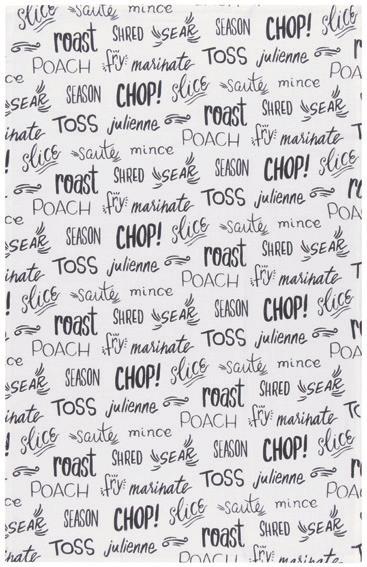 slice sauté mince SEASON CHOP! slice
roast SHRED SEAR TOSS julienne
POACH fry marinate sauté mince
SEAR SEASON CHOP! slice roast SHRED SEAR
inate TOSS julienne POACH fry marinate
slice sauté mince SEASON CHOP! slice
roast SHRED SEAR TOSS julienne
POACH fry marinate sauté mince
SEAR SEASON CHOP! slice roast SHRED SEAR
inate TOSS julienne POACH fry marinate
slice sauté mince SEASON CHOP! slice
roast SHRED SEAR TOSS julienne
POACH fry marinate sauté mince
SEAR SEASON CHOP! slice roast SHRED SEAR
inate TOSS julienne POACH fry marinate
slice sauté mince SEASON CHOP! slice
roast SHRED SEAR TOSS julienne
POACH fry marinate sauté mince
SEAR SEASON CHOP! slice roast SHRED SEAR
inate TOSS julienne POACH fry marinate